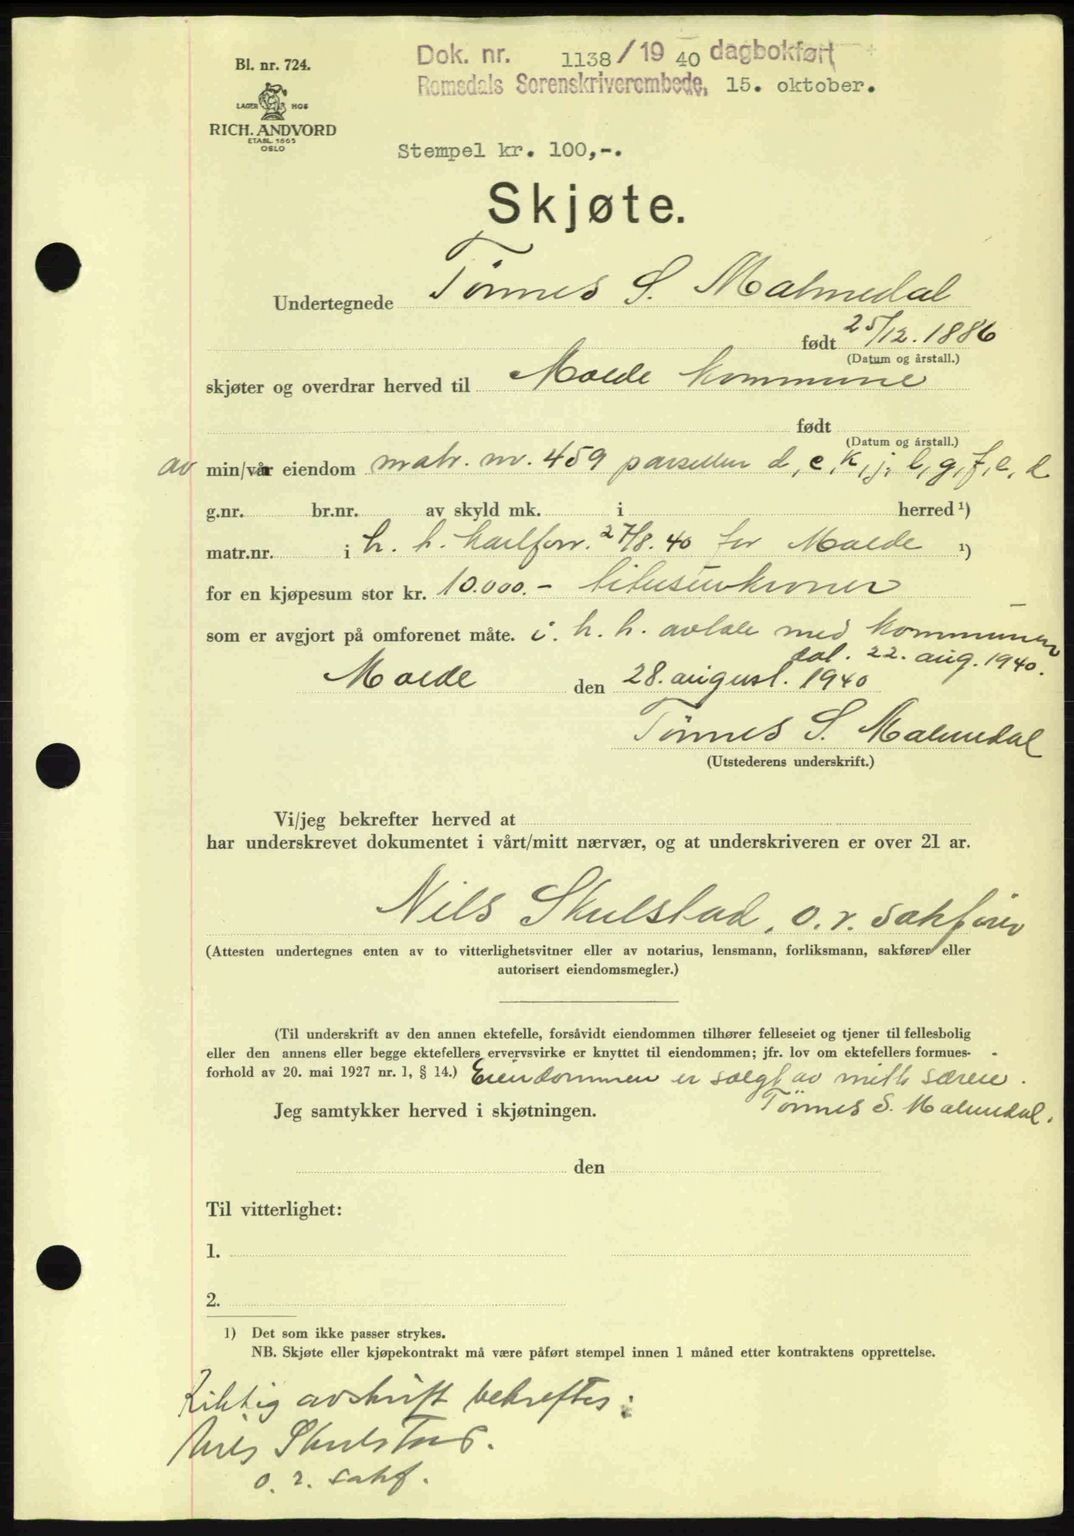 Bl. nr. 724.
LAGER HOS
RICH. ANDVORD
ETABL. 1865
OSLO
Dok. nr. 1138 / 19 40 dagbokført
Romsdals Sorenskriverembede, 15. oktober.
Stempel kr. 100,-.
Skjøte.
Undertegnede Tønnes S. Malmedal
født 25/12. 1886
(Datum og årstall.)
skjøter og overdrar herved til Molde kommune
født
(Datum og årstall.)
av min/vår eiendom matr. nr. 459 parseller d, e, k, j, l, g, f, e, d
g.nr. br.nr. av skyld mk. i herred ¹)
matr.nr. i h. h. karlforr. 27/8. 40 for Molde ¹)
for en kjøpesum stor kr. 10.000.- titusenkroner
som er avgjort på omforenet måte. i. h. h. avtale med kommunen
dat. 22. aug. 1940.
Molde den 28. august. 1940
Tønnes S. Malmedal
(Utstederens underskrift.)
Vi/jeg bekrefter herved at
har underskrevet dokumentet i vårt/mitt nærvær, og at underskriveren er over 21 ar.
Nils Skulstad, o. r. sakfører
(Attesten undertegnes enten av to vitterlighetsvitner eller av notarius, lensmann, forliksmann, sakfører eller
autorisert eiendomsmegler.)
(Til underskrift av den annen ektefelle, forsåvidt eiendommen tilhører felleseiet og tjener til fellesbolig
eller den annens eller begge ektefellers ervervsvirke er knyttet til eiendommen; jfr. lov om ektefellers formues-
forhold av 20. mai 1927 nr. 1, § 14.) Eiendommen er solgt av mitt særeie.
Jeg samtykker herved i skjøtningen. Tønnes S. Malmedal.
den
Til vitterlighet:
1.
2.
1) Det som ikke passer strykes.
NB. Skjøte eller kjøpekontrakt må være påført stempel innen 1 måned etter kontraktens opprettelse.
Riktig avskrift bekreftes:
Nils Skulstad.
o. r. sakf.